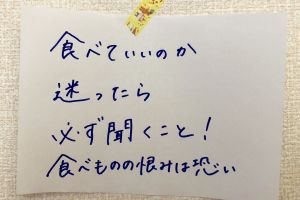 食べていいのか
迷ったら
必ず聞くこと!
食べものの恨みは恐い